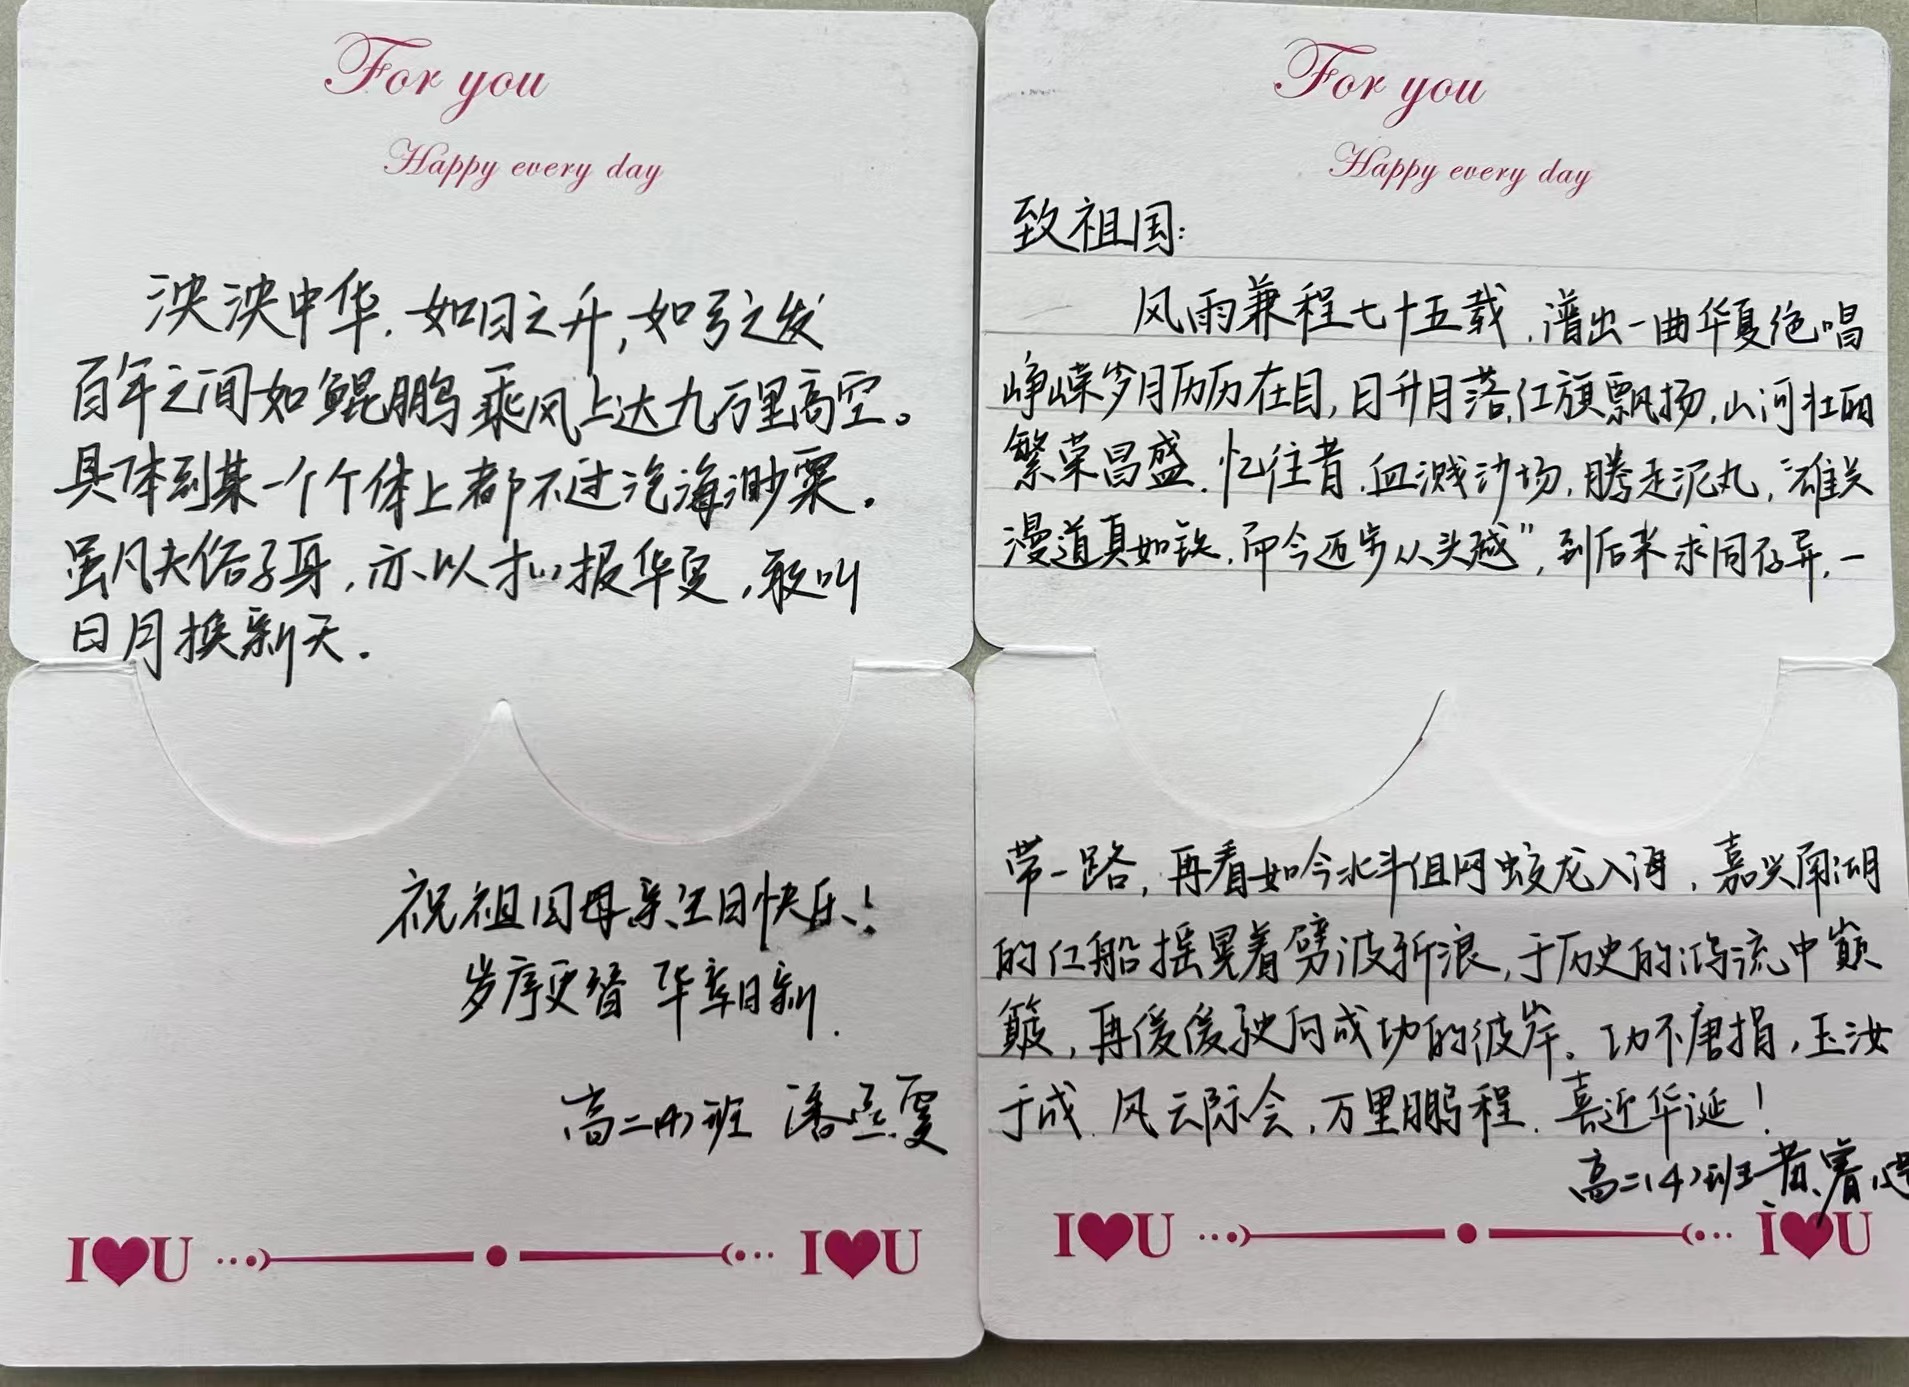 For you
Happy every day
泱泱中华,如日之升,如弓之发
百年之间如鲲鹏乘风上达九万里高空。
具体到某一个个体上都不过沧海渺粟.
虽凡夫俗子身,亦以才心报华夏,敢叫
日月换新天.
祝祖国母亲生日快乐!
岁序更替 华章日新.
高二(4)班 潘
I❤U I❤U
For you
Happy every day
致祖国:
风雨兼程七十五载,谱出一曲华夏绝唱
峥嵘岁月历历在目,日升月落,红旗飘扬,山河壮丽
繁荣昌盛.忆往昔,血溅沙场,腾走泥丸,雄关
漫道真如铁,而今迈步从头越”,到后来求同存异,一
带一路,再看如今北斗组网蛟龙入海,嘉兴南湖
的红船摇晃着劈波斩浪,于历史的鸿流中颠
簸,再缓缓驶向成功的彼岸。功不唐捐,玉汝
于成.风云际会,万里鹏程.喜迎华诞!
高二(4)班 黄睿
I❤U I❤U